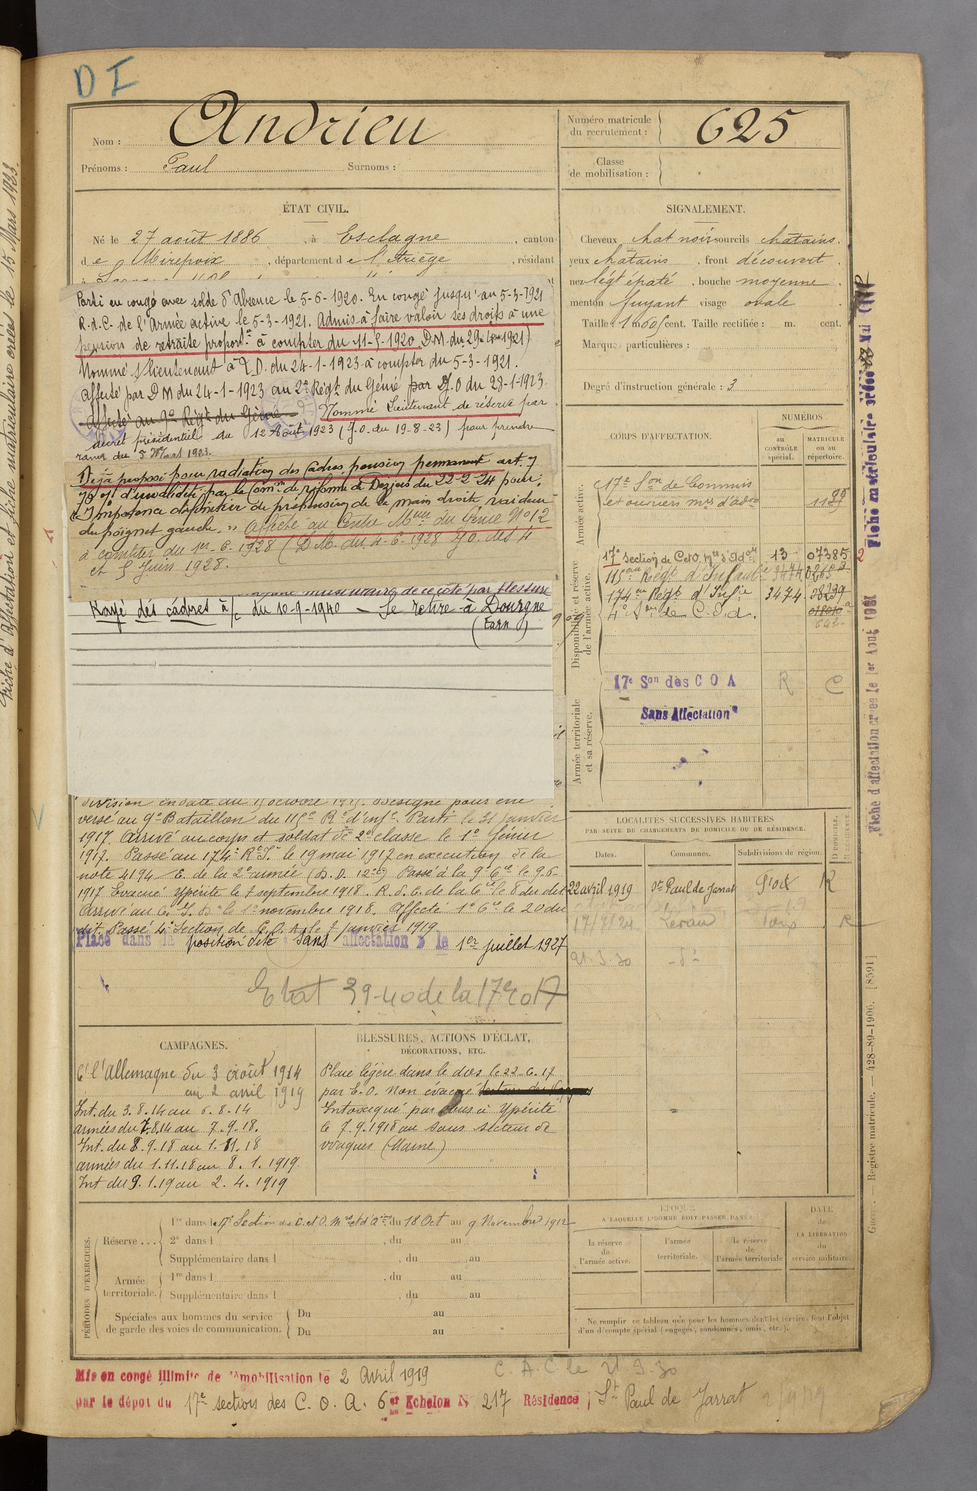 D I
Nom : Andrieu
Prénoms : Paul Surnoms :
Numéro matricule
du recrutement : 625
Classe
de mobilisation :
ÉTAT CIVIL.
Né le 27 août 1886, à Esclagne, canton
de Mirepoix, département de l'Ariège, résidant
SIGNALEMENT.
Cheveux chat noir sourcils chatains.
yeux chatains, front découvert.
nez lég[t] épaté, bouche moyenne
menton fuyant visage ovale
Taille : 1 m 60 cent. Taille rectifiée : m. cent.
Marques particulières :
Degré d'instruction générale : 3
Parti en congé avec solde d'absence le 5-6-1920. En congé jusqu'au 5-3-1921
R.d.C. de l'Armée active le 5-3-1921. Admis à faire valoir ses droits à une
pension de retraite proport.le à compter du 11-5-1920 D.M. du 29
Nommé S/lieutenant à T.D. du 24-1-1923 à compter du 5-3-1921.
affecté par DM du 24-1-1923 au 2e Régt du Génie par J.O du 28-1-1923.
affecté au 9e Régt du Génie Nommé Lieutenant de réserve par
décret présidentiel du 12 Août 1923 (J.O. du 19-8-23) pour prendre
rang du 5 Mars 1923.
Déjà proposé pour radiation des Cadres pension permanent art. 7
d'invalidité par la Com.on de réforme de Béziers du 22-2-24 pour,
Impotence de préhension de la main droite raideur
du poignet gauche. " Affecté au Centre M.on du Génie No 12
à compter du 1er-6-1928 (D.M. du 4-6-1928 J.O. des 4
et 5 Juin 1928.
musculaire de ce côté par blessure
Rayé des cadres à/c du 10-9-1940 — Se retire à Dourgne
(Tarn)
CORPS D'AFFECTATION.
NUMÉROS
au
CONTRÔLE
spécial.
MATRICULE
ou au
répertoire.
Armée active.
17e Son de Commis
et ouvriers mres d'adon
Disponibilité et réserve
de l'armée active.
17e Section de C et O. Mres d'Adon 13 07385
115eme Régt d'Infanterie 3474
174eme Régt d'Infie 3474
4e Son de C.O.A.
Armée territoriale
et sa réserve.
17e Son des C O A R C
Sans Affectation
division en date du octobre Désigné pour être
versé au 9e Bataillon du 115e Rt d'Infie. Parti le 31 janvier
1917. Arrivé au corps et soldat de 2e classe le 1er février
1917. Passé au 174e R.I. le 19 mai 1917 en exécution de la
note 4194 E. de la 2e armée Passé à la 9e Cie le 9.6
1917 Evacué ypérité le 7 septembre 1918. R.S.C. de la Cie le 8 du dit
Arrivé au C.I.D. le 1er novembre 1918. Affecté 1e Cie le 20 du
dit. Passé 4e Section de C.O.A. le 7 janvier 1919
Placé dans la position dite " sans affectation " le 1er juillet 1927
Etat 39-40 de la 17e
LOCALITÉS SUCCESSIVES HABITÉES
PAR SUITE DE CHANGEMENTS DE DOMICILE OU DE RÉSIDENCE.
Dates. Communes. Subdivisions de région.
22 avril 1919 St Paul de Jarrat Foix R
17/9/24 Léran Foix R
21-3-30 -d°-
CAMPAGNES.
Ce l'Allemagne du 3 août 1914
au 2 avril 1919
Int. du 3.8.14 au 6.8.14
armées du 7.8.14 au 7.9.18.
Int. du 8.9.18 au 1.11.18
armées du 1.11.18 au 8.1.1919
Int du 9.1.19 au 2.4.1919
BLESSURES, ACTIONS D'ÉCLAT,
DÉCORATIONS, ETC.
Plaie légère dans le dos le 22.6.17
par E.O. non évacué
Intoxiqué par obus à Ypérite
le 7.9.1918 au sous secteur de
(Marne)
PÉRIODES D'EXERCICES.
Réserve
1re dans la 17e Section de C. et O. Mres d'Aon du 18 Oct au 9 Novembre 1912
2e dans l , du au
Supplémentaire dans l , du au
Armée
territoriale.
1re dans l , du au
Supplémentaire dans l , du au
Spéciales aux hommes du service
de garde des voies de communication.
Du au
Du au
ÉPOQUE
À LAQUELLE L'HOMME DOIT PASSER DANS :
la réserve
de
l'armée active.
l'armée
territoriale.
la réserve
de
l'armée territoriale
DATE
de
LA LIBÉRATION
du
service militaire.
Ne remplir ce tableau que pour les hommes dont les services font l'objet
d'un décompte spécial (engagés, condamnés, omis, etc.).
C.A.C le 21.3.30
Mis en congé illimité de démobilisation le 2 Avril 1919
par le dépôt du 17e sections des C.O.A. 6e Echelon N° 217 Résidence St Paul de Jarrat
Guerre. — Registre matricule. — 428-89-1906. [8591]
Fiche d'affectation créée le 1er Août 1931
Fiche matriculaire créée
Fiche d'affectation et fiche matriculaire créées le 15 Mars 1923